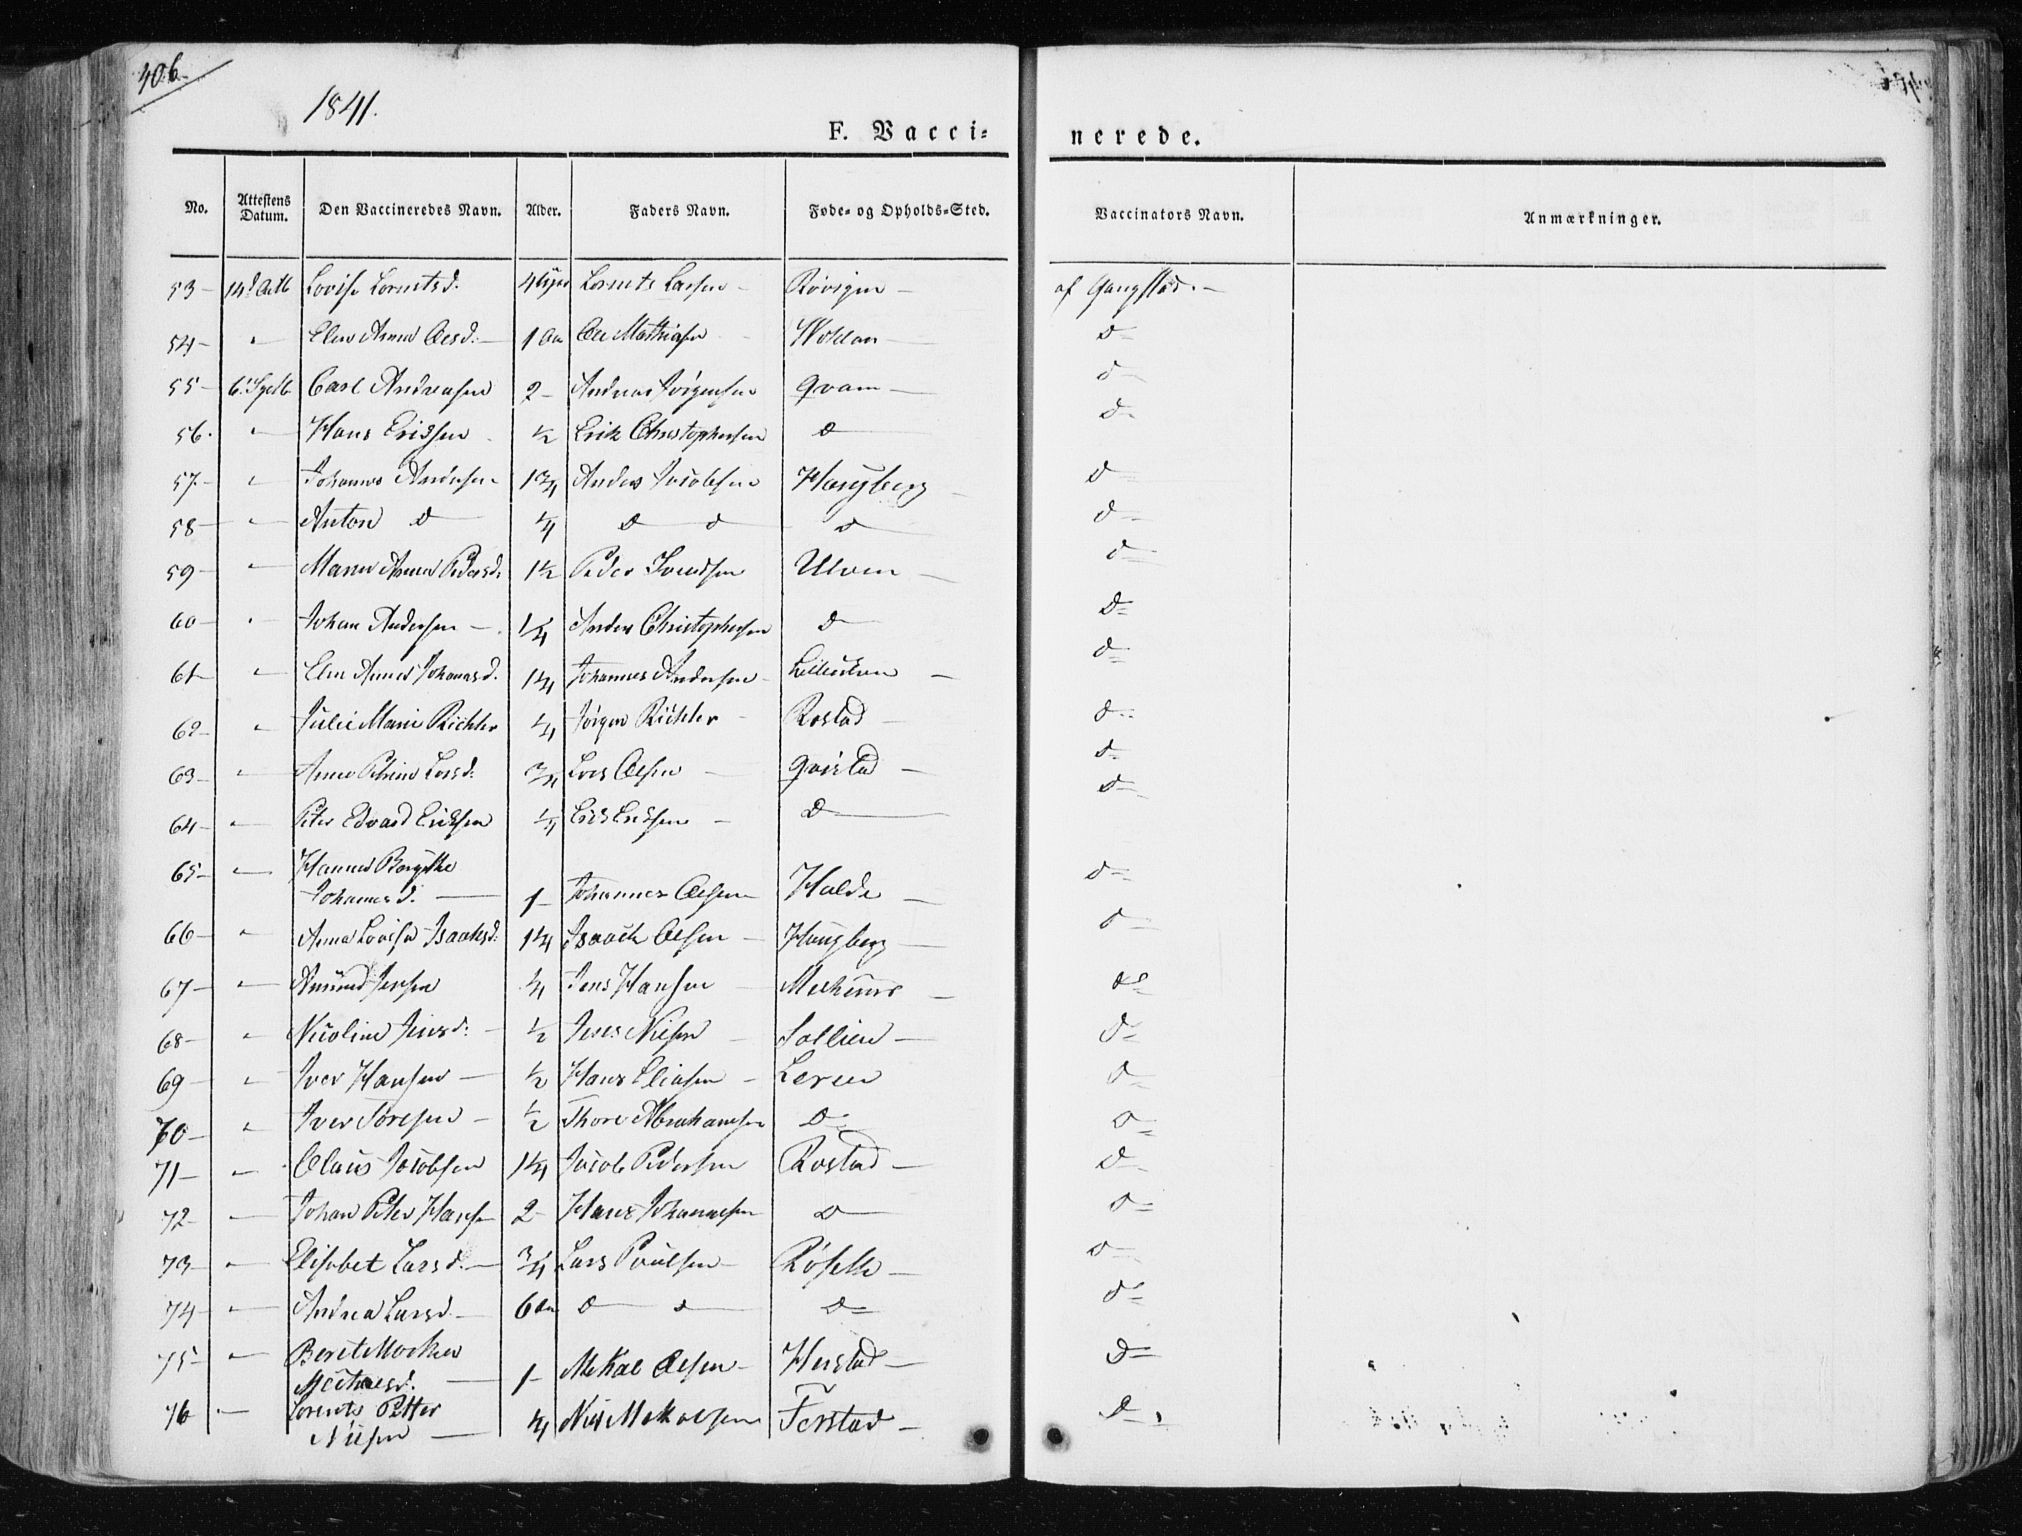 406
1841.
F. Vacci=
nerede.
No. Attestens Datum. Den Vaccineredes Navn. Alder. Faders Navn. Føde= og Opholds=Sted. Vaccinators Navn. Anmærkninger.
53 — 14 Lovise Lorentsd. Lorents Larsen — af Gangstad. —
54 — " Elen Anna Olsd: — 1 Ole Mathiasen d=
55 — 6 Carl Andreasen 2 — Andreas Jørgensen Qvam — d=
56. " Hans Eriksen ½ Erik Christophersen d — d=
57 — " Johannes Andersen 1¾ Anders Jacobsen Haugberg — d=
58 — " Anton d — ¼ d — d — d — d=
59 — " Maren Anna Pedersd: 1½ Peder Ulven — d=
60 — " Johan Andersen — 1¼ Anders Christophersen d — d=
61 — " Elen Anna Johansd. 1¼ Johannes Andersen — d=
62 — " Julie Marie Richter ¼ Jørgen Richter — Rostad — d=
63 — " Anne Petrine Larsd: ¾ Lars Olsen — Qvistad — d=
64 — " Peter Edvard Eriksen ¼ Erik Eriksen — d — d=
65 — " Hanna Bergithe
Johannesd. — 1 — Johannes Olsen Halde — d=
66 — " Anna Lovisa Isaaksd: 1¼ Isaach Olsen — Haugberg — d=
67 — " Amund Jensen ¼ Jens Hansen — — d=
68 — " Nicoline Jensd: — ½ Jens Nielsen — Sollien — d=
69 — " Iver Hansen — ½ Hans Eliasen — Leren d=
70 — " Iver Toresen — ½ Thore Abrahamsen d — d=
71 — " Claus Jacobsen 1¼ Jacob Pedersen Rostad — d=
72 — " Johan Peter Hansen 2 — Hans Johannesen d — d=
73 — " Elisabet Larsd. — ¾ Lars Poulsen — — d=
74 — " Andrea Larsd. — 6 d — d — d= d=
75 — " Beret
Michaelsd. — 1 — Mikal Olsen — — d=
76 — Lorents Petter
Nilsen — ¼ Nils Mikalsen Ferstad — d=